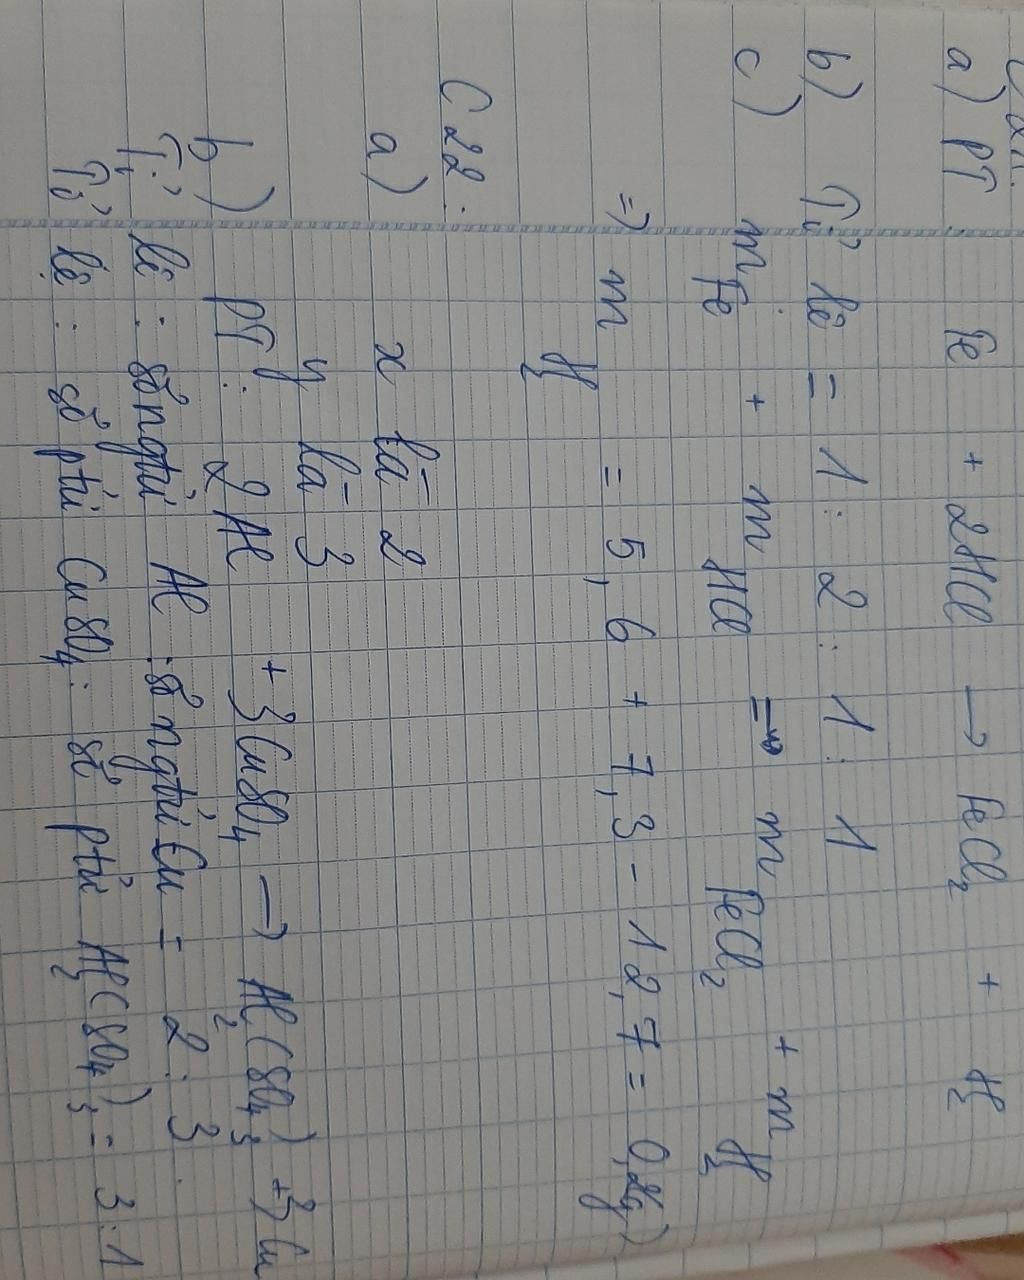 C21:
a) PT: Fe + 2HCl → FeCl₂ + H₂
b) Tỉ lệ = 1 : 2 : 1 : 1
c) mFe + mHCl => mFeCl₂ + mH₂
=> mH₂ = 5,6 + 7,3 - 12,7 = 0,2(g)
C22:
a) x là 2
y là 3
b) PT: 2Al + 3CuSO₄ → Al₂(SO₄)₃ + 3Cu
Tỉ lệ: số ngtử Al : số ngtử Cu = 2 : 3
Tỉ lệ: số ptử CuSO₄ : số ptử Al₂(SO₄)₃ = 3:1